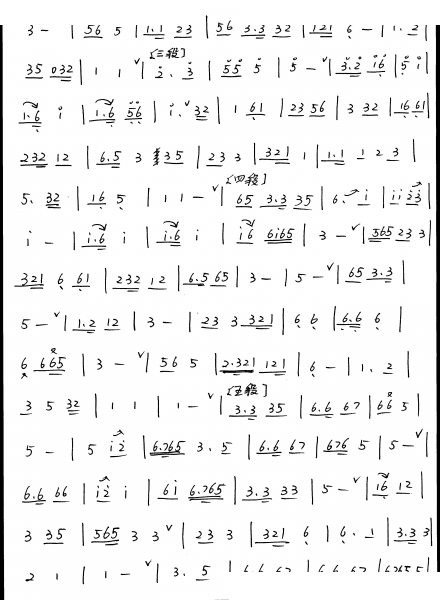 3 - | 56 5 | 1.1 23 | 56 3.3 32 | 121 6 - | 1. 2 |
[三段]
35 032 | 1 1 ∨ | 2. 3 | 55 5 | 5 - ∨ | 3.2 16 | 5 1 |
1.6 1 | 1.6 56 | 1. 32 | 1 61 | 23 56 | 3 32 | 16 61 |
232 12 | 6.5 3 35 | 23 3 | 321 1 | 1.1 1 2 3 |
[四段]
5. 32 | 16 5 | 1 1 - ∨ | 65 3.3 35 | 6. 1 | 11 23 |
1 - | 1.6 1 | 1.6 1 | 16 6165 | 3 - ∨ | 565 23 3 |
321 6 61 | 232 12 | 6.5 65 | 3 - | 5 - ∨ | 65 3.3 |
5 - ∨ | 1.2 12 | 3 - | 23 3 321 | 6 6 | 6.6 6 |
6 665 | 3 - ∨ | 56 5 | 2.321 121 | 6 - | 1. 2 |
[五段]
3 5 32 | 1 1 | 1 - ∨ | 3.3 35 | 6.6 67 | 66 5 |
5 - | 5 12 | 6.765 3. 5 | 6.6 67 | 676 5 | 5 - ∨ |
6.6 66 | 12 1 | 61 6.765 | 3.3 33 | 5 - ∨ | 16 12 |
3 35 | 565 3 3 ∨ | 23 3 | 321 6 | 6. 1 | 3.3 3 |
2 1 | 1 - ∨ | 3. 5